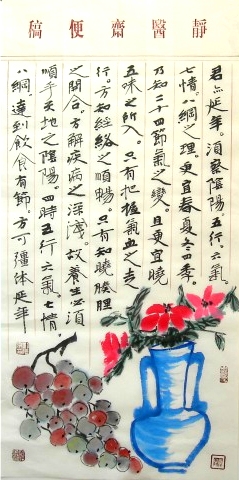 靜醫齋便稿
君延年。須察陰陽。五行。六氣。
七情。八綱之理。更宜春夏冬四季。
乃知二十四節氣之變。且更宜曉
五味之所入。只有把握氣血之走
行。方知經絡之順暢。只有知曉
之開合。方解疾病之深淺。故養生必須
順乎天地之陰陽。四時五行六氣。七情
八綱。達到飲食有節方可彊体延年